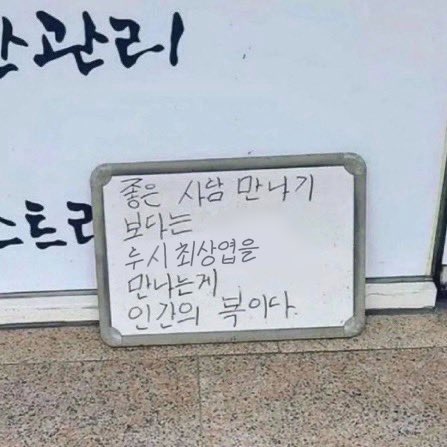 관리
스트
좋은 사람 만나기
보다는
루시 최상엽을
만나는게
인간의 복이다.